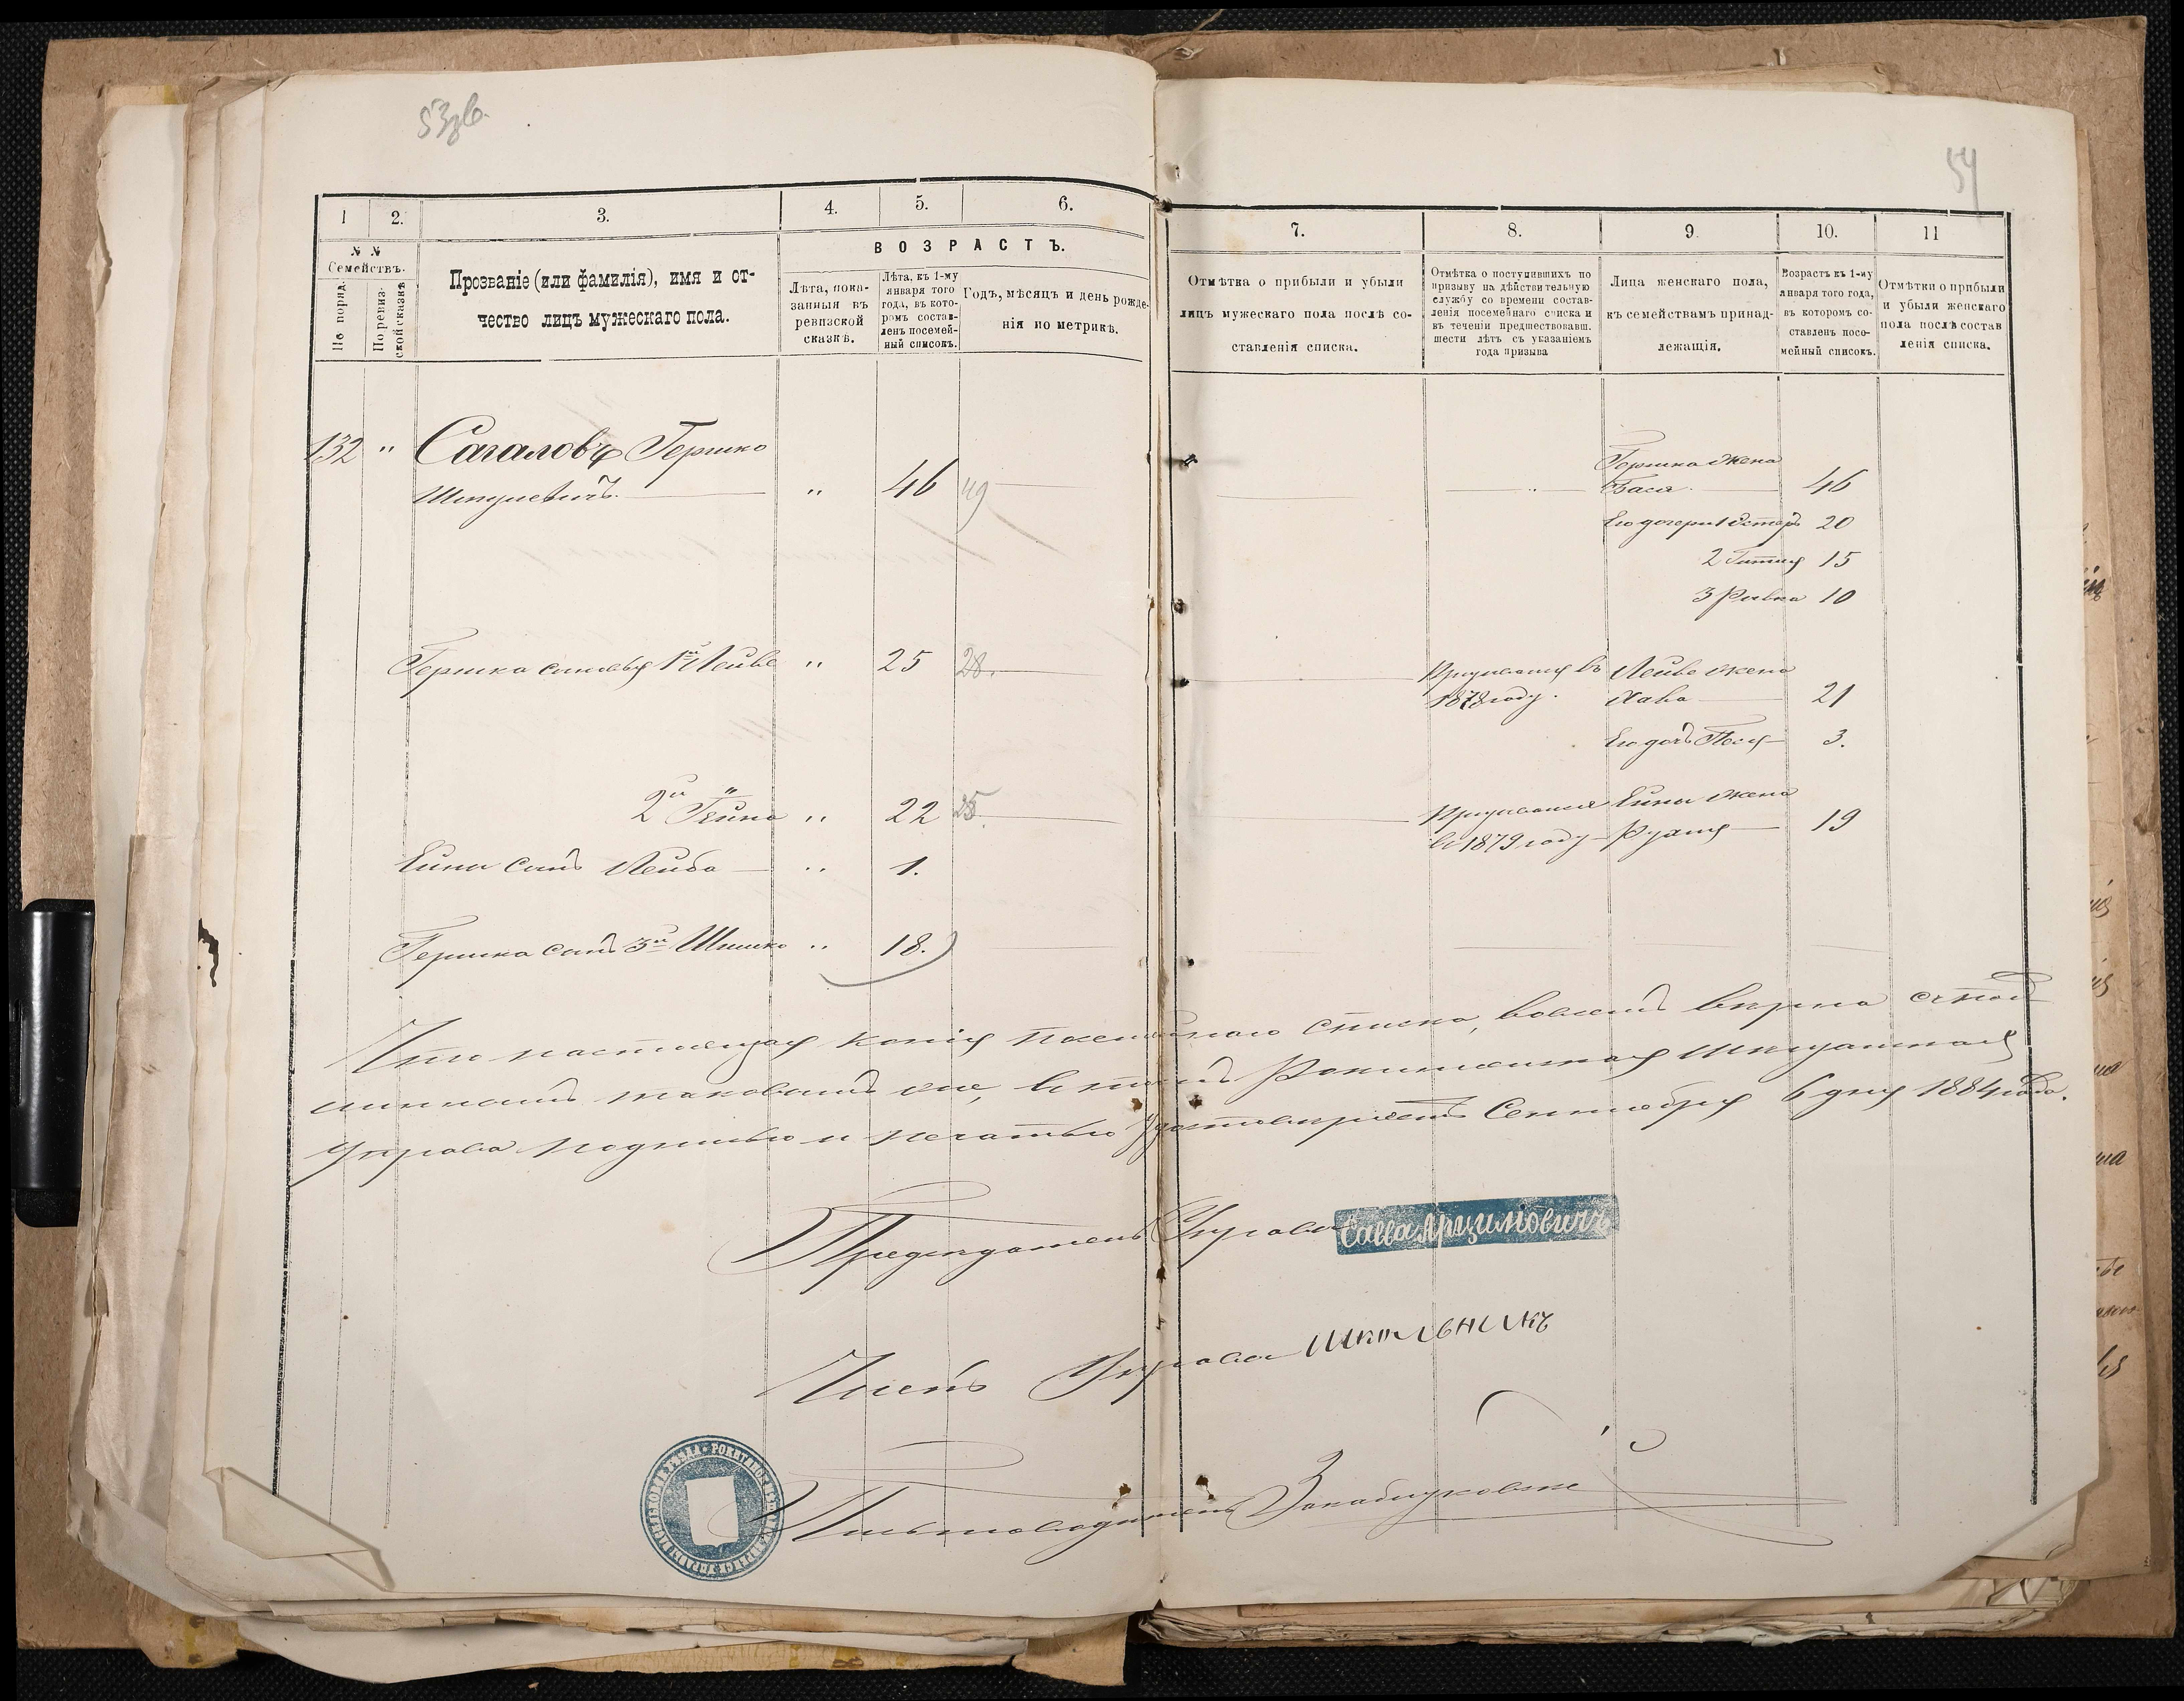 53об.
54
1
2.
3.
4.
5.
6.
7.
8.
9.
10.
11
№ №
Семействъ.
По поряд.
По ревиз-
ской сказкѣ
Прозваніе (или фамилія), имя и от-
чество лицъ мужескаго пола.
ВОЗРАСТЪ.
Лѣта, пока-
занныя въ
ревизской
сказкѣ.
Лѣта, къ 1-му
января того
года, въ кото-
ромъ состав-
ленъ посемей-
ный списокъ.
Годъ, мѣсяцъ и день рожде-
нія по метрикѣ.
Отмѣтка о прибыли и убыли
лицъ мужескаго пола послѣ со-
ставленія списка.
Отмѣтка о поступившихъ по
призыву на дѣйствительную
службу со времени состав-
ленія посемейнаго списка и
въ теченіи предшествовавш.
шести лѣтъ съ указаніемъ
года призыва
Лица женскаго пола,
къ семействамъ принад-
лежащія.
Возрастъ къ 1-му
января того года,
въ которомъ со-
ставленъ посе-
мейный списокъ.
Отмѣтки о прибыли
и убыли женскаго
пола послѣ состав
ленія списка.
132 " Сагаловъ Гершко
Шмулевичъ " 46 49
Гершка жена
Бася 46
Его дочери 1 Эстеръ 20
2 Гитля 15
3 Ривка 10
Гершка сыновья 1й Лейве " 25 28.
Призывался въ
1878 году.
Лейве жена
Хава 21
Его дочь Песя 3.
2й Гейна " 22 25.
Призывался
въ 1879 году
Ейны жена
Рухля 19
Ейны сынъ Лейба " 1.
Гершка сынъ 3й Шмилко " 18.
Что настоящая копія посемейнаго списка, во всемъ вѣрна съ под
линнымъ таковымъ же, въ томъ Рокитянская Мѣщанская
Управа подписью и печатью удостовѣряетъ Сентября 6 дня 1884 года.
Предсѣдатель Управы Савва Арцимовичъ
Членъ Управы Школьникъ
Письмоводитель